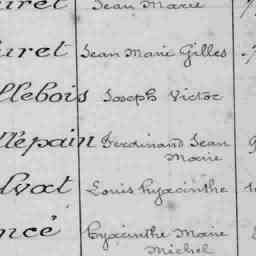 uret Jean Marie
uret Jean Marie Gilles
llebois Joseph Victor
llepain Ferdinand Jean
Marie
lvat Louis hyacinthe
ncé hyacinthe Marie
Michel